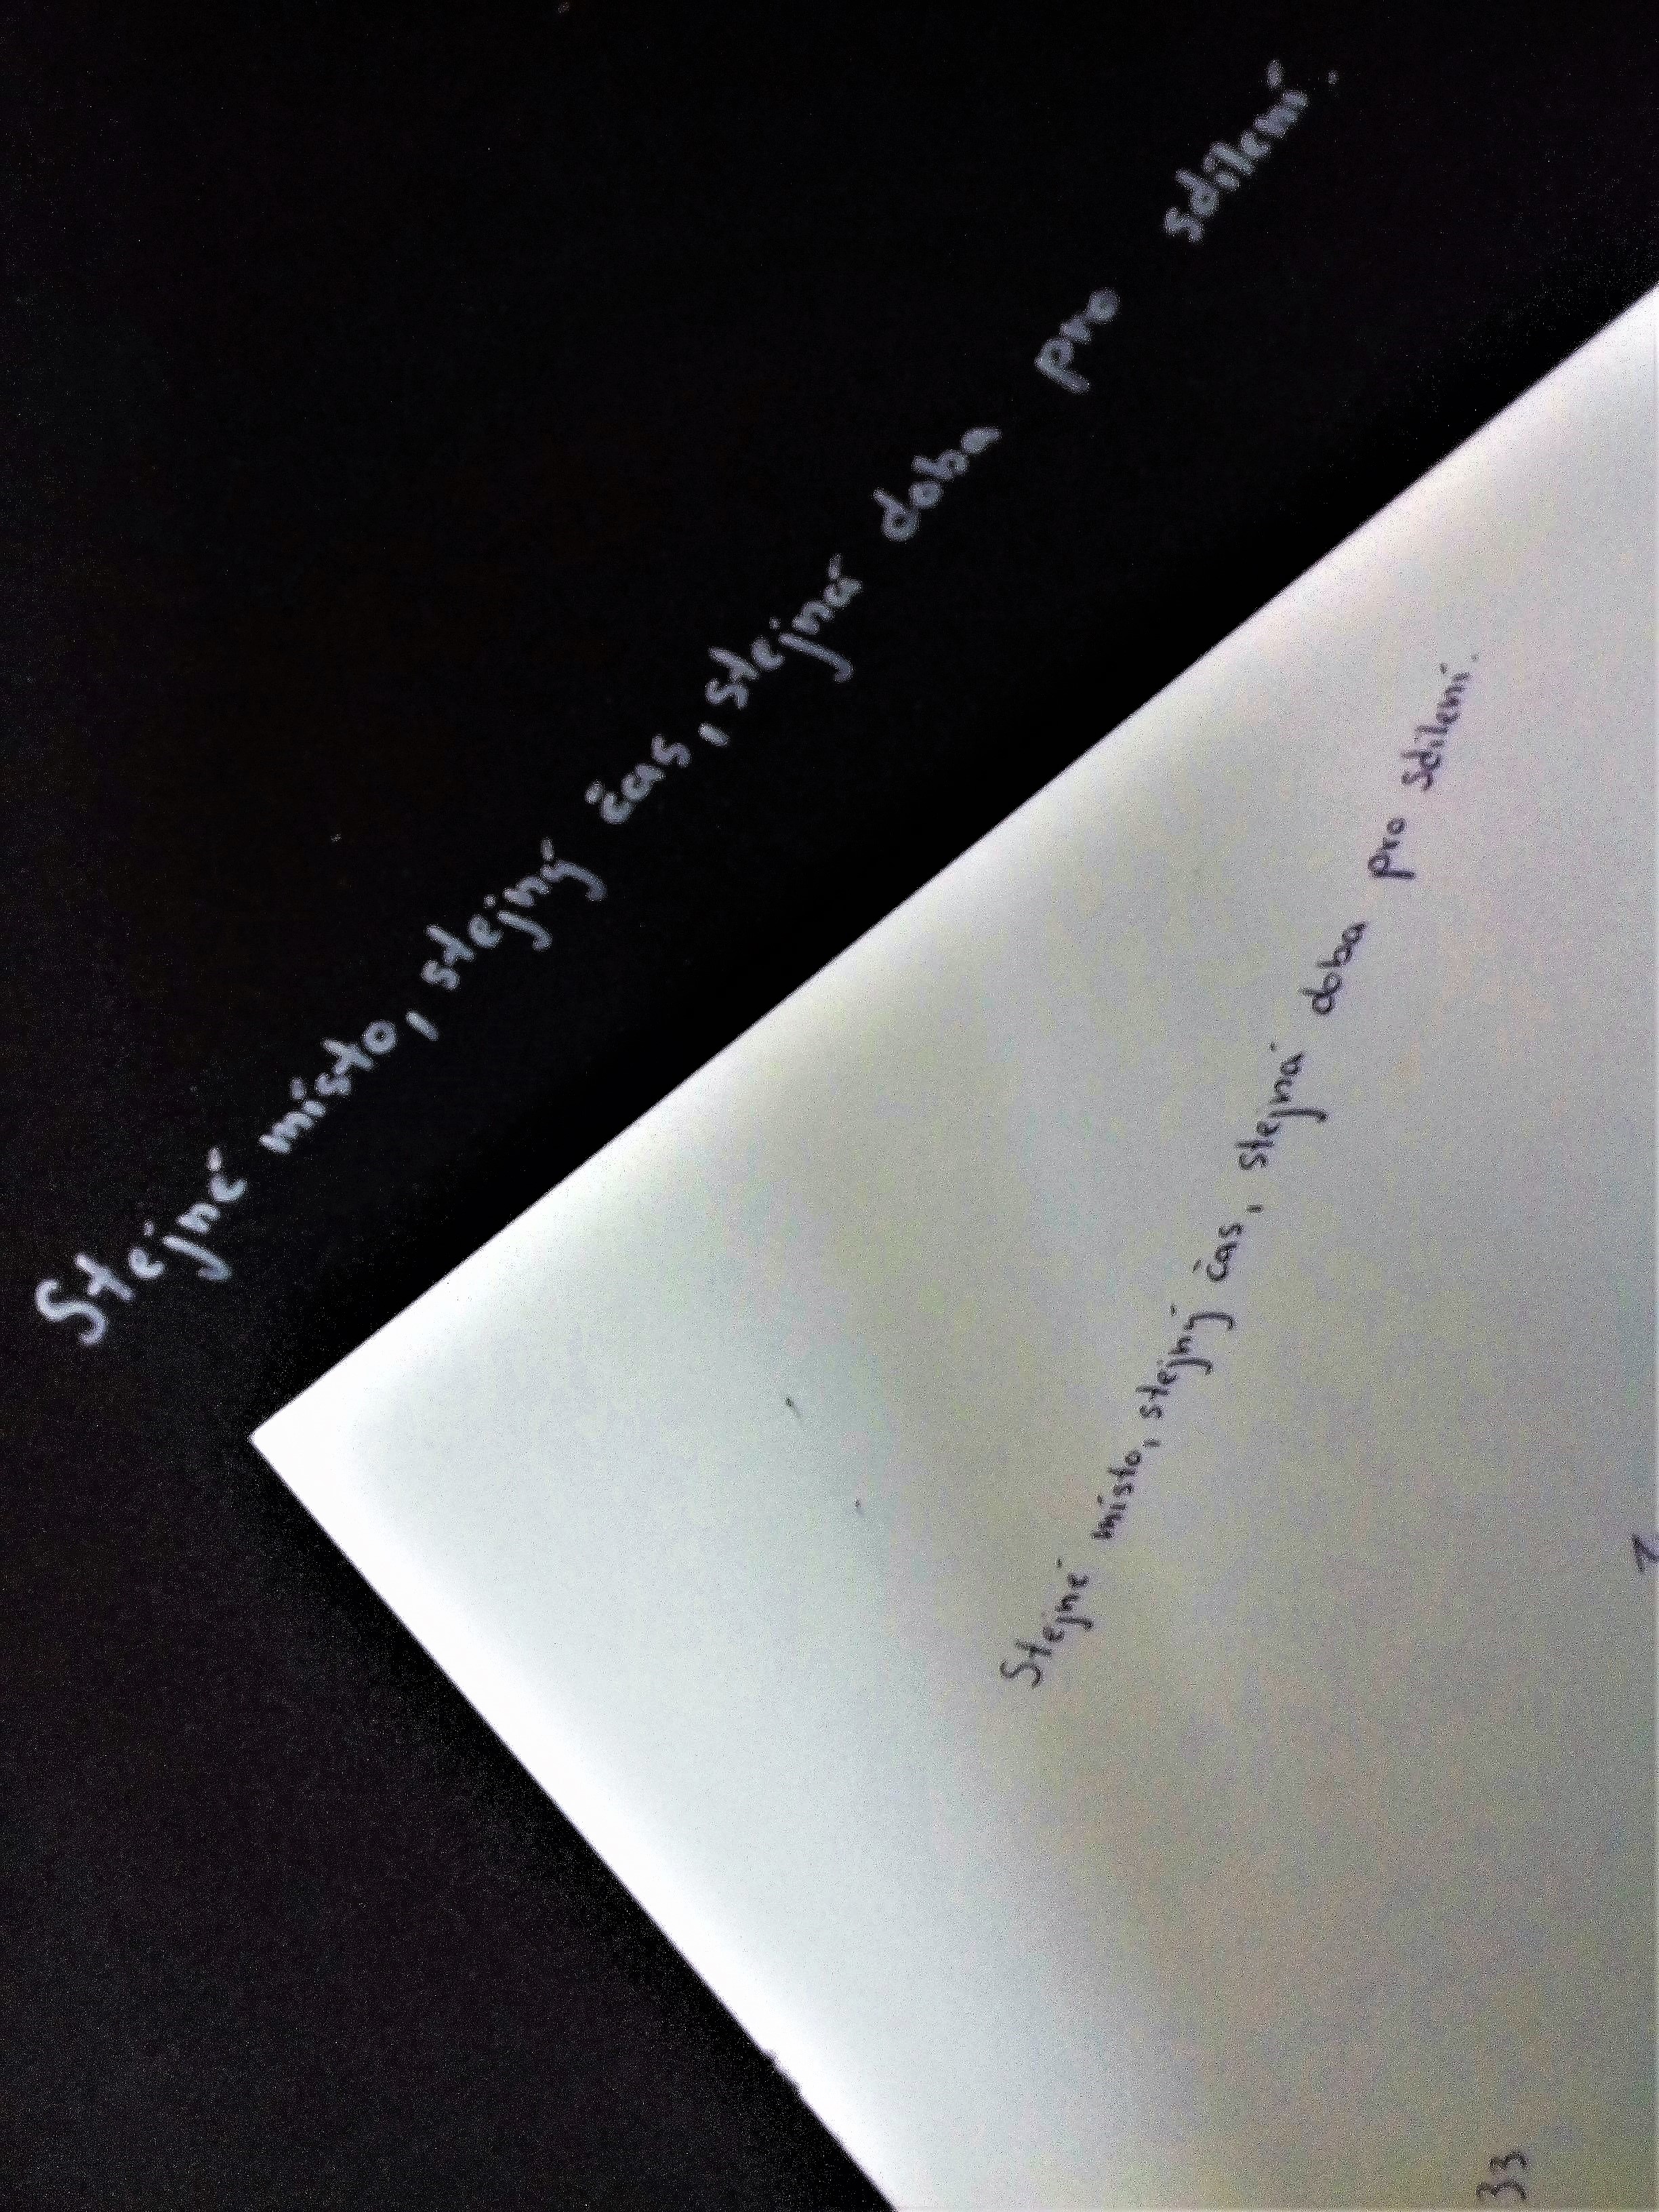 Stejné místo, stejný čas, stejná doba pro sdílení.
Stejné místo, stejný čas, stejná doba pro sdílení.
33